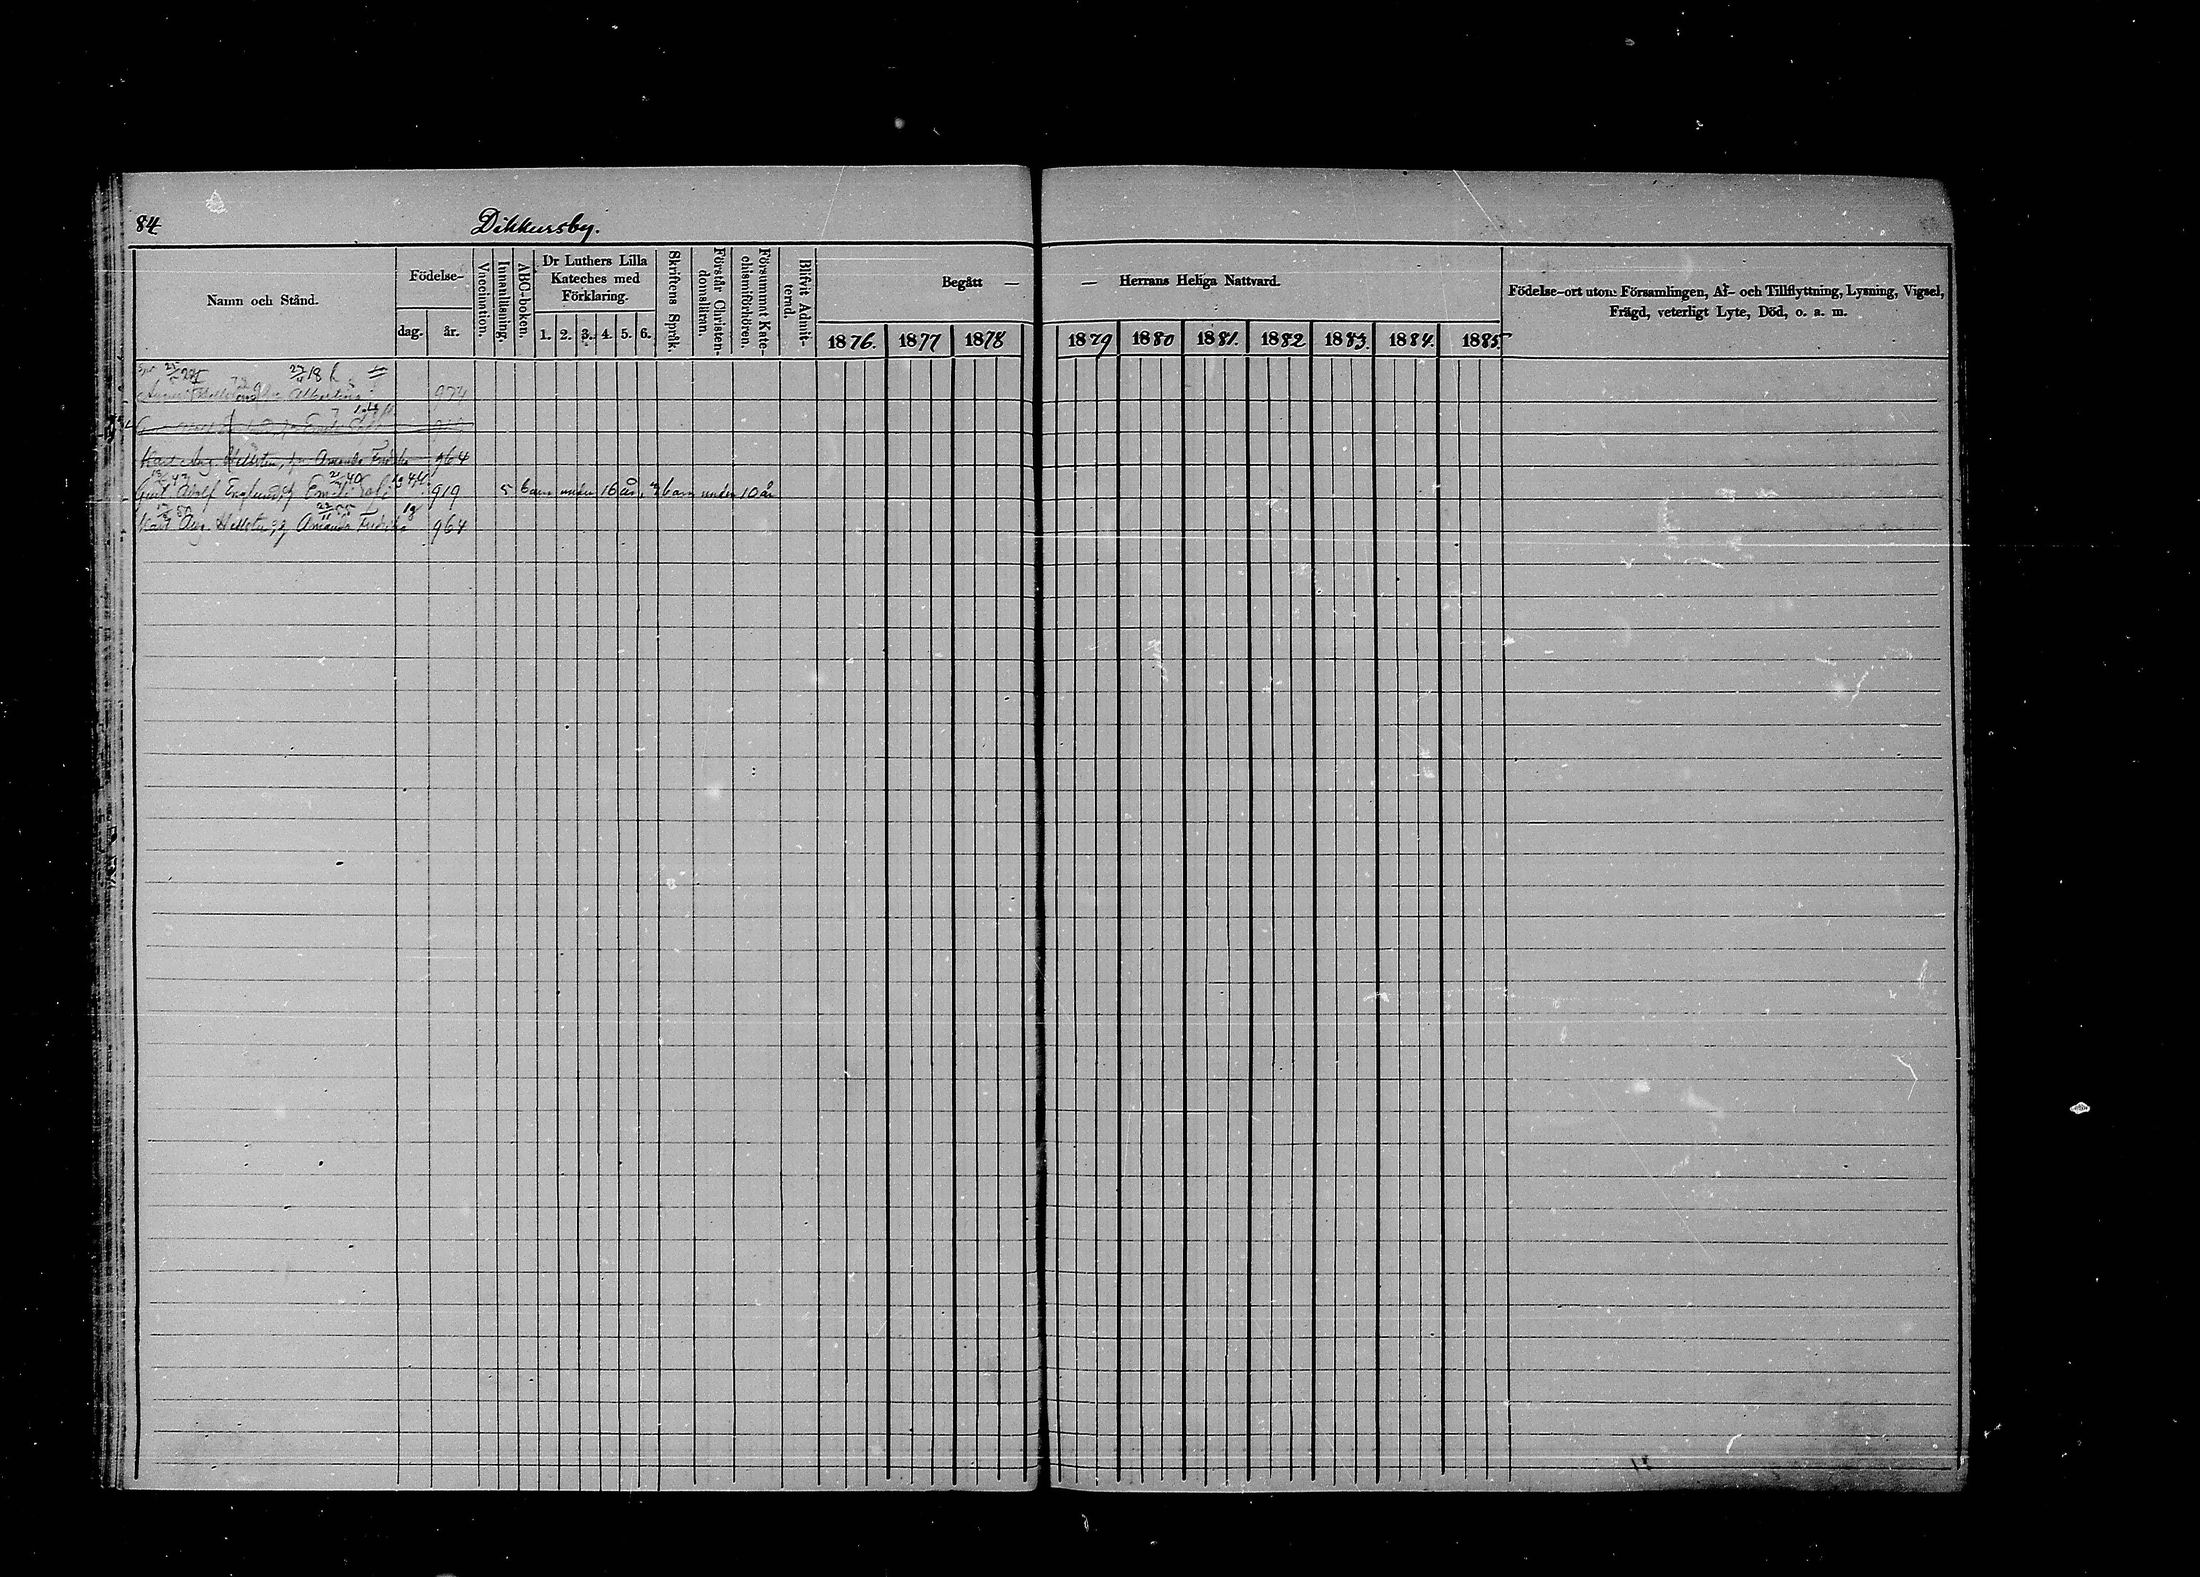 84
Dikkursby.
Namn och Stånd.
Födelse-
dag. år.
Vaccination.
Innanläsning.
ABC-boken.
Dr Luthers Lilla
Kateches med
Förklaring.
1. 2. 3. 4. 5. 6.
Skriftens Språk.
Förstår Christen-
domsläran.
Försummat Kate-
chismiförhören.
Blifvit Admit-
terad.
Begått —
1876. 1877 1878
— Herrans Heliga Nattvard.
1879 1880 1881. 1882 1883. 1884. 1885.
Födelse-ort utom Församlingen, Af- och Tillflyttning, Lysning, Vigsel,
Frägd, veterligt Lyte, Död, o. a. m.
Albertina 974
Karl Aug. Hellsten, Amanda Fredrika 964
Gust Adolf Englund, 919 5 barn under 16 år, barn under 10 år
Karl Aug. Hellsten, Amanda Fredrika 964